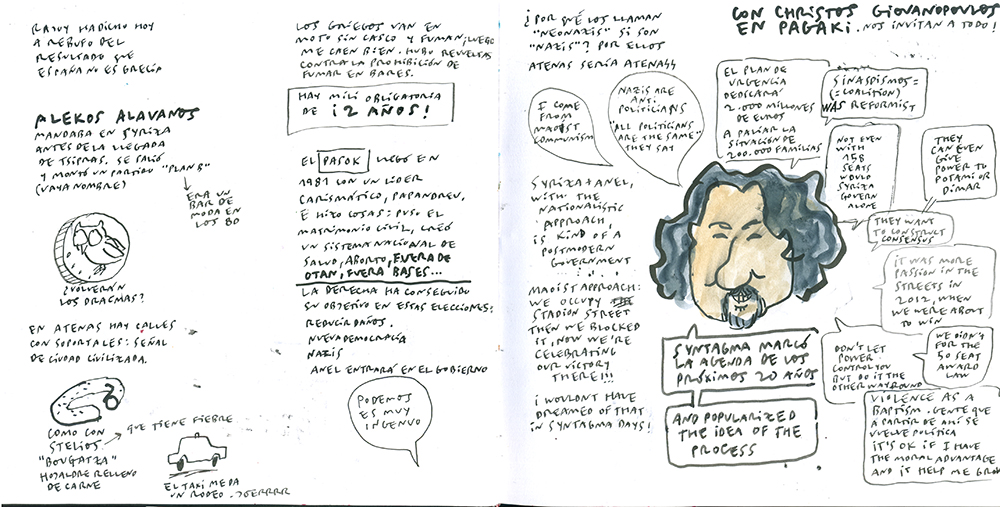 RAJOY HA DICHO HOY
A REBUFO DEL
RESULTADO QUE
ESPAÑA NO ES GRECIA
ALEKOS ALAVANOS
MANDABA EN SYRIZA
ANTES DE LA LLEGADA
DE TSIPRAS. SE SALIÓ
Y MONTÓ UN PARTIDO "PLAN B"
(VAYA NOMBRE)
ERA UN
BAR DE
MODA EN
LOS 80
¿VOLVERÁN
LOS DRACMAS?
EN ATENAS HAY CALLES
CON SOPORTALES: SEÑAL
DE CIUDAD CIVILIZADA.
COMO CON
STELIOS
"BOUGATZA"
HOJALDRE RELLENO
DE CARNE
QUE TIENE FIEBRE
EL TAXI ME DA
UN RODEO. JOERRRR
LOS GRIEGOS VAN EN
MOTO SIN CASCO Y FUMAN, LUEGO
ME CAEN BIEN. HUBO REVUELTAS
CONTRA LA PROHIBICIÓN DE
FUMAR EN BARES.
HAY MILI OBLIGATORIA
DE ¡2 AÑOS!
EL PASOK LLEGÓ EN
1981 CON UN LÍDER
CARISMÁTICO, PAPANDREU,
E HIZO COSAS: PUSO EL
MATRIMONIO CIVIL, CREÓ
UN SISTEMA NACIONAL DE
SALUD, ABORTO, FUERA DE
OTAN, FUERA BASES...
LA DERECHA HA CONSEGUIDO
SU OBJETIVO EN ESTAS ELECCIONES:
REDUCIR DAÑOS.
NUEVA DEMOCRACIA
NAZIS
ANEL ENTRARÁ EN EL GOBIERNO
PODEMOS
ES MUY
INGENUO
¿POR QUÉ LOS LLAMAN
"NEONAZIS" SI SON
"NAZIS"? POR ELLOS
ATENAS SERÍA ATENASS
CON CHRISTOS GIOVANOPOULOS
EN PAGAKI. NOS INVITAN A TODO!
I COME
FROM
MAOIST
COMMUNISM
NAZIS ARE
ANTI
POLITICIANS
"ALL POLITICIANS
ARE THE SAME"
THEY SAY
EL PLAN DE
URGENCIA
DEDICARÁ
2.000 MILLONES
DE EUROS
A PALIAR LA
SITUACIÓN DE
200.000 FAMILIAS
SINASPISMOS=
(=COALITION)
WAS REFORMIST
NOT EVEN
WITH
158
SEATS
WOULD
SYRIZA
GOVERN
ALONE
THEY
CAN EVEN
GIVE
POWER TO
POTAMI OR
DIMAR
THEY WANT
TO CONSTRUCT
CONSENSUS
IT WAS MORE
PASSION IN THE
STREETS IN
2012, WHEN
WE WERE ABOUT
TO WIN
SYRIZA + ANEL,
WITH THE
NATIONALISTIC
APPROACH,
IS KIND OF A
POSTMODERN
GOVERNMENT
MAOIST APPROACH:
WE OCCUPY
STADION STREET
THEN WE BLOCKED
IT, NOW WE'RE
CELEBRATING
OUR VICTORY
THERE!!!
I WOULDN'T HAVE
DREAMED OF THAT
IN SYNTAGMA DAYS!
SYNTAGMA MARCÓ
LA AGENDA DE LOS
PRÓXIMOS 20 AÑOS
AND POPULARIZED
THE IDEA OF THE
PROCESS
DON'T LET
POWER
CONTROL YOU
BUT DO IT THE
OTHER WAY ROUND
WE DIDN'T
FOR THE
50 SEAT
AWARD
LAW
VIOLENCE AS A
BAPTISM. GENTE QUE
A PARTIR DE AHÍ SE
VUELVE POLÍTICA
IT'S OK IF I HAVE
THE MORAL ADVANTAGE
AND IT HELP ME GROW